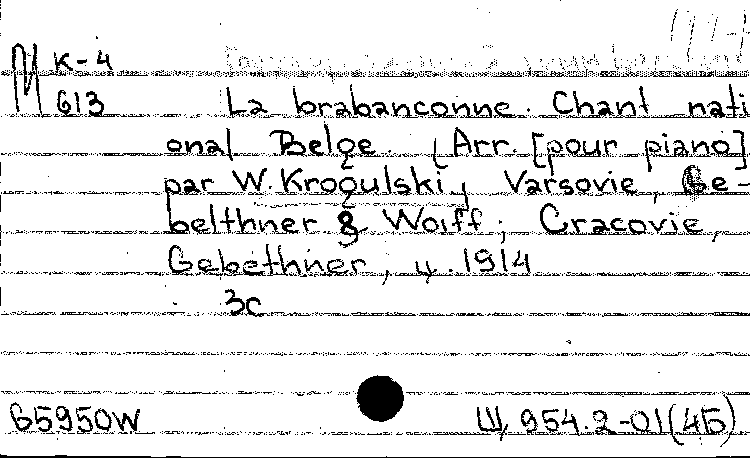 М К-4
613
La brabanconne. Chant nati
onal Belge. (Arr. [pour piano]
par W. Krogulski, Varsovie, Ge-
belthner & Wolff; Cracovie,
Gebethner, ц. 1914
3с
65950W Щ 954.2-01(4Б)